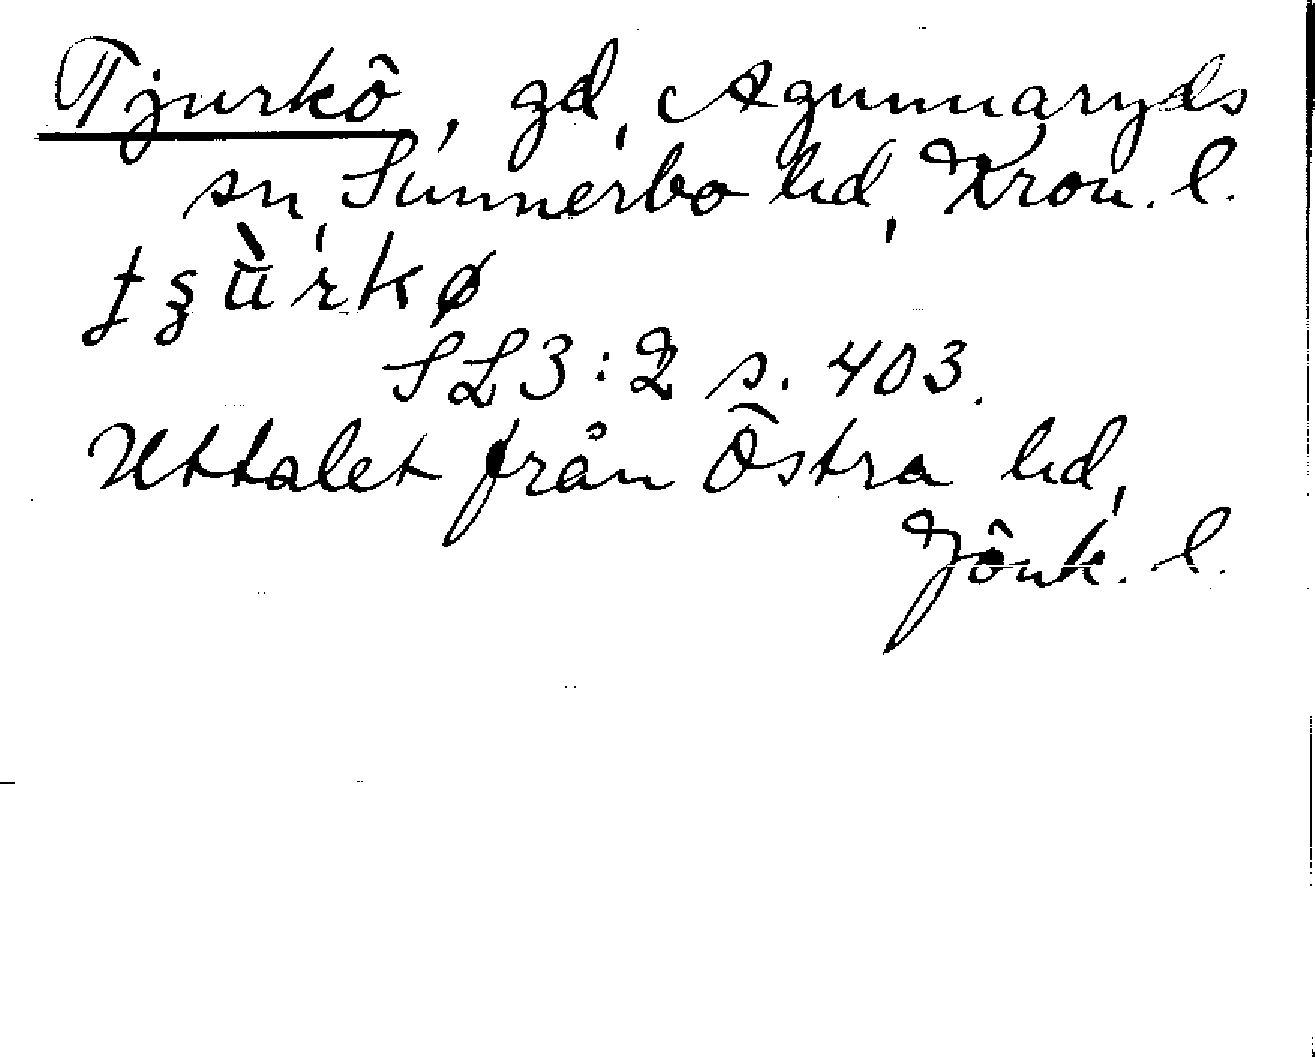 Tjurkö, gd, Agunnaryds
sn, Sunnerbo hd, Kron. l.
SL 3:2 s. 403.
Uttalet från Östra hd,
Jönk. l.